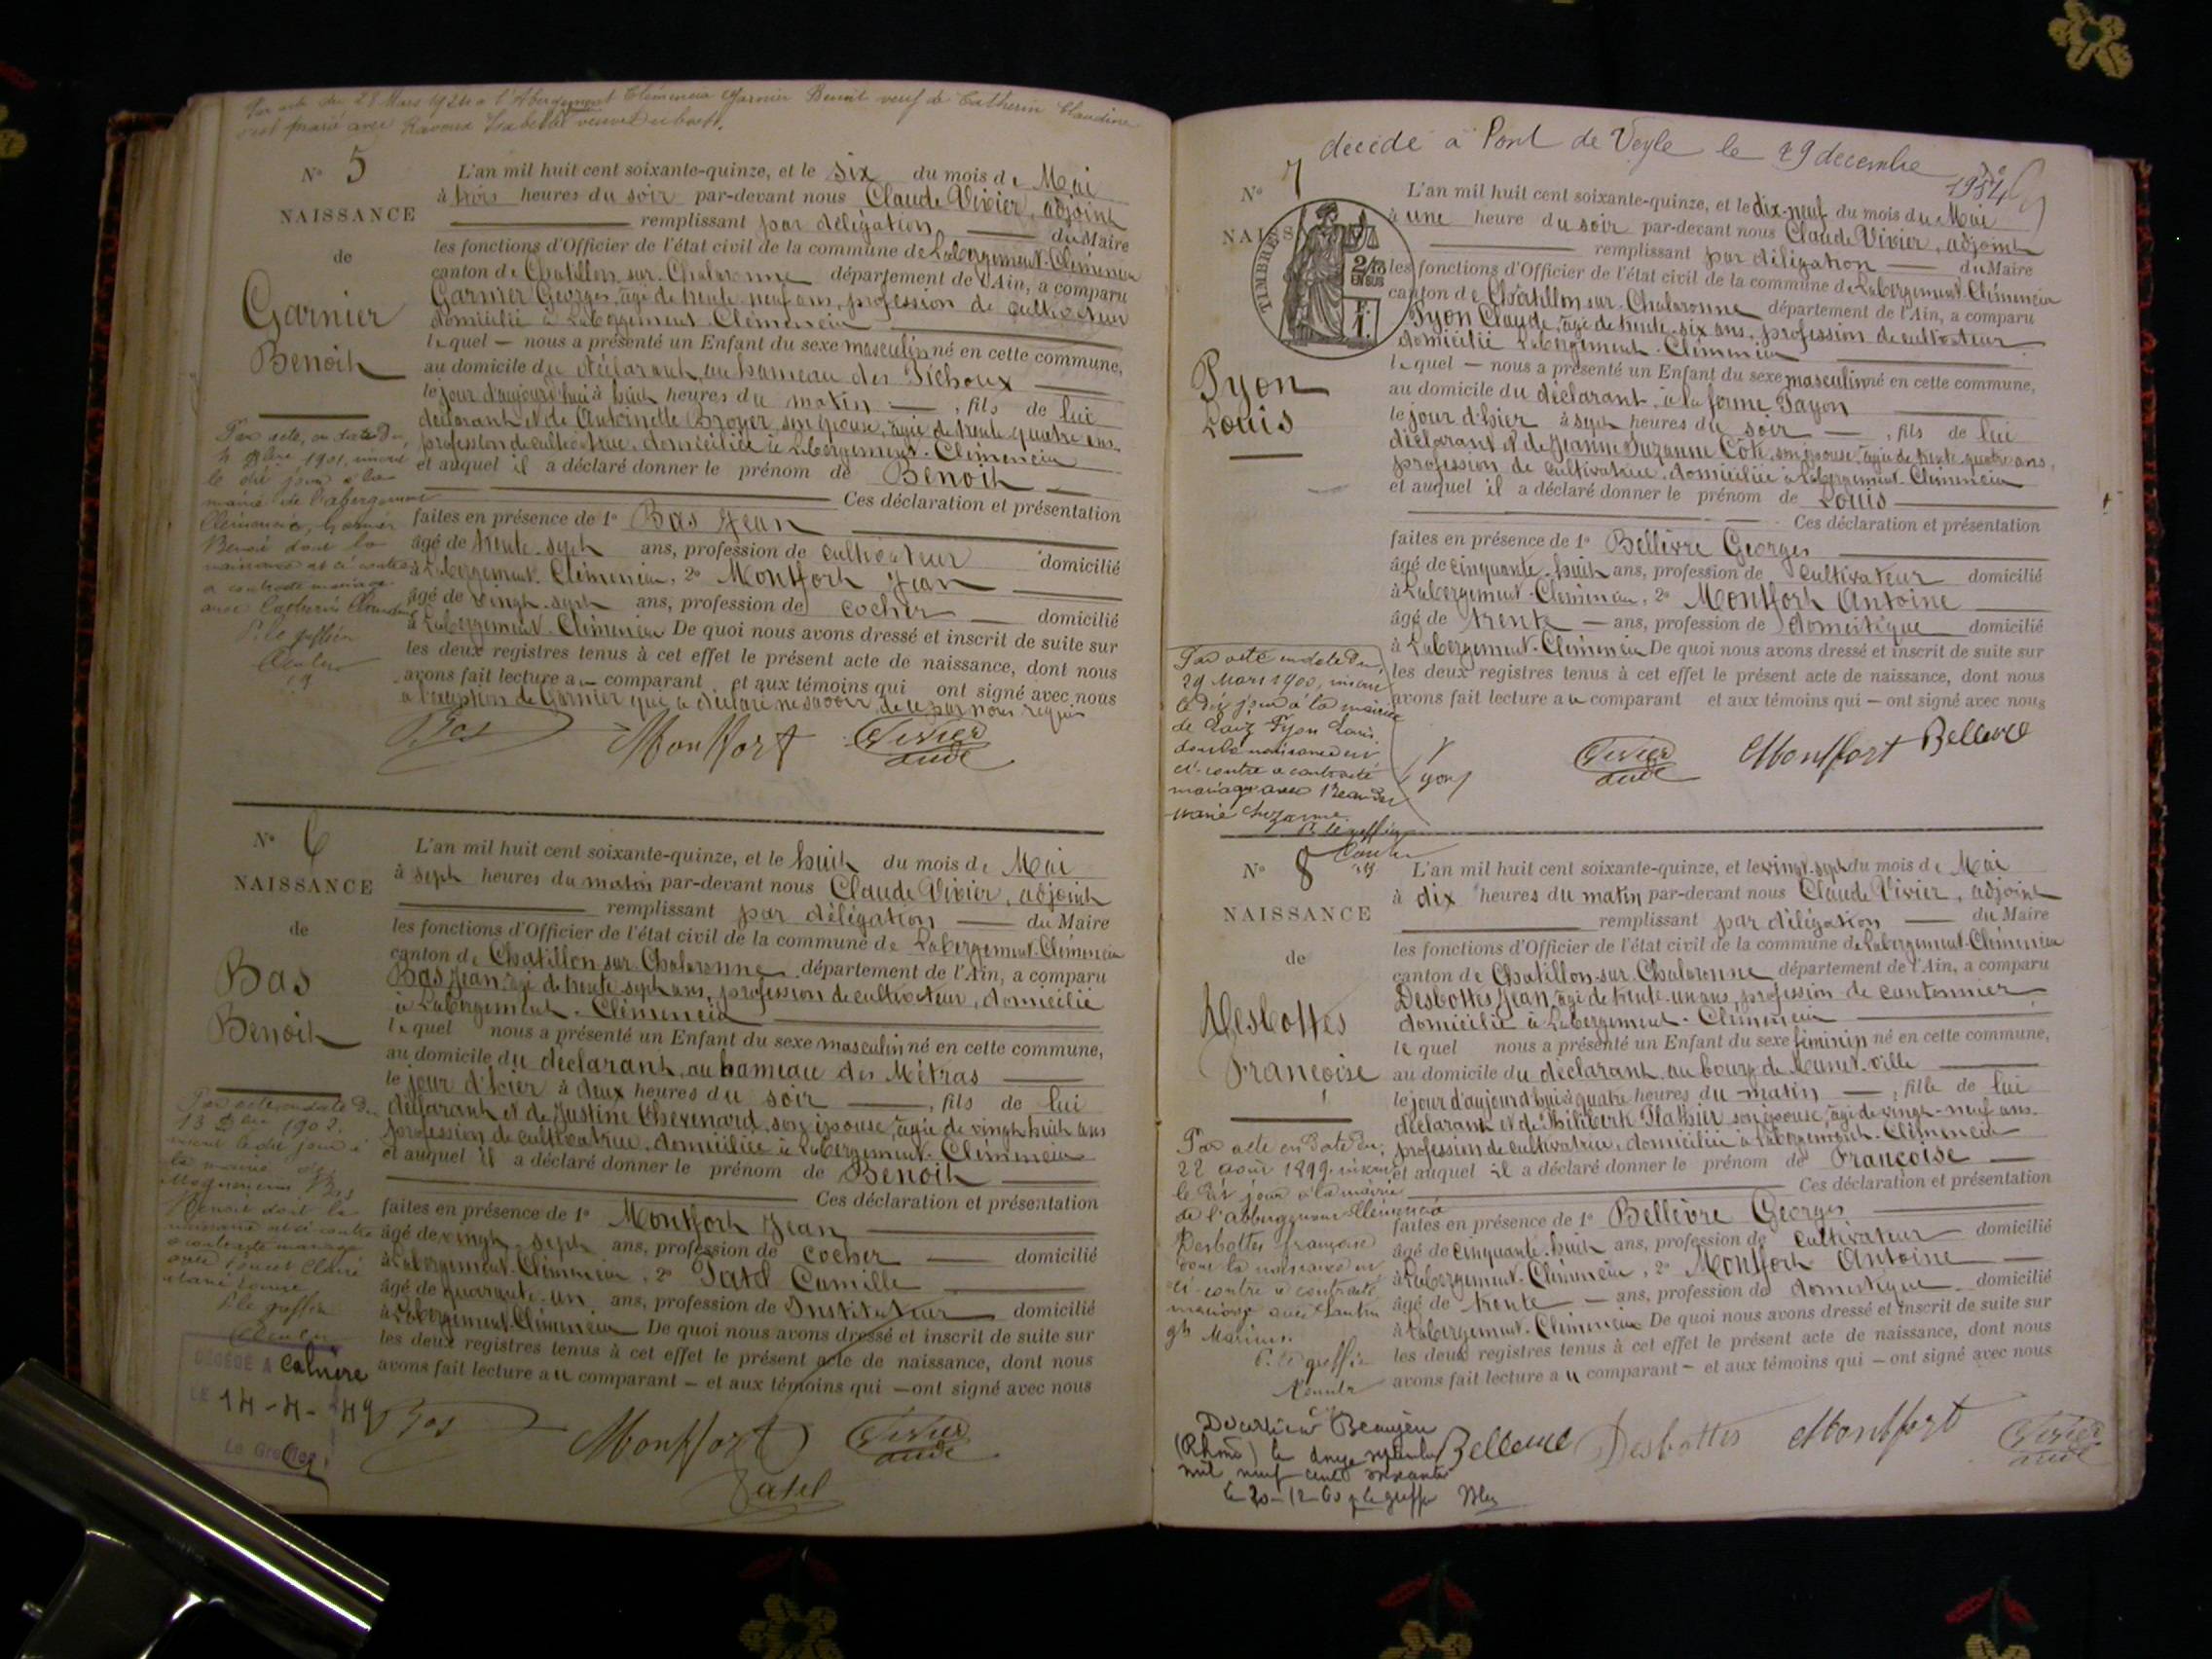 Par acte du 28 Mars 1924 à l'Abergement Clémencia Garnier Benoît veuf de Catherin Claudine
s'est marié avec Ravoux Isabelle veuve
N° 5
NAISSANCE
de
Garnier
Benoit
Par acte, en date du
4 1901, inscrit
le dit jour à la
mairie de l'abergement
Clémencia, Garnier
Benoit dont la
naissance est ci contre
a contracté mariage
avec Catherin Claudine
P. le greffier
L'an mil huit cent soixante-quinze, et le six du mois de Mai
à trois heures du soir par-devant nous Claude Vivier, adjoint
remplissant par délégation du Maire
les fonctions d'Officier de l'état civil de la commune de Labergement-Clémencia
canton de Chatillon sur Chalaronne département de l'Ain, a comparu
Garnier Georges, âgé de trente neuf ans, profession de cultivateur
domicilié à Labergement-Clémencia
lequel — nous a présenté un Enfant du sexe masculin né en cette commune,
au domicile du déclarant, au hameau des Pichoux
le jour d'aujourd'hui à huit heures du matin —, fils de lui
déclarant et de Antoinette Broyer, son épouse, âgée de trente quatre ans
profession de cultivatrice, domiciliée à Labergement-Clémencia
et auquel il a déclaré donner le prénom de Benoit
Ces déclaration et présentation
faites en présence de 1° Bas Jean
âgé de trente-sept ans, profession de cultivateur domicilié
à Labergement-Clémencia, 2° Montfort Jean
âgé de vingt-sept ans, profession de cocher domicilié
à Labergement-Clémencia De quoi nous avons dressé et inscrit de suite sur
les deux registres tenus à cet effet le présent acte de naissance, dont nous
avons fait lecture au comparant, et aux témoins qui ont signé avec nous
à l'exception de Garnier qui a déclaré ne savoir, de ce par nous requis
Bas Montfort Vivier
aude
N° 6
NAISSANCE
de
Bas
Benoit
Par acte en date du
13 1902.
inscrit le dit jour à
la mairie de
Mogneneins Bas
Benoit dont la
naissance est ci contre
a contracté mariage
avec Poncet Claire
P. le greffier
DÉCÉDÉ A Caluire
LE 14-4-49
Le Greffier,
L'an mil huit cent soixante-quinze, et le huit du mois de Mai
à sept heures du matin par-devant nous Claude Vivier, adjoint
remplissant par délégation du Maire
les fonctions d'Officier de l'état civil de la commune de Labergement-Clémencia
canton de Chatillon sur Chalaronne département de l'Ain, a comparu
Bas Jean, âgé de trente sept ans, profession de cultivateur, domicilié
à Labergement-Clémencia
lequel nous a présenté un Enfant du sexe masculin né en cette commune,
au domicile du déclarant, au hameau des Métras
le jour d'hier à deux heures du soir —, fils de lui
déclarant et de Justine Chevenard, son épouse, âgée de vingt huit ans
profession de cultivatrice, domiciliée à Labergement-Clémencia
et auquel il a déclaré donner le prénom de Benoit
Ces déclaration et présentation
faites en présence de 1° Montfort Jean
âgé de vingt-sept ans, profession de cocher domicilié
à Labergement-Clémencia, 2° Patel Camille
âgé de quarante-un ans, profession de Instituteur domicilié
à Labergement-Clémencia De quoi nous avons dressé et inscrit de suite sur
les deux registres tenus à cet effet le présent acte de naissance, dont nous
avons fait lecture au comparant — et aux témoins qui — ont signé avec nous
Bas Montfort Vivier
aude
Patel
décédé à Pont de Veyle le 29 decembre
1954
N° 7
NAISS
TIMBRES
2/10
EN SUS
Pyon
Louis
Par acte en date du
29 Mars 1900, inscrit
le dit jour à la mairie
de Laiz Pyon Louis
dont la naissance est
ci-contre a contracté
mariage avec
Marie Suzanne.
P. le greffier
L'an mil huit cent soixante-quinze, et le dix-neuf du mois de Mai
à une heure du soir par-devant nous Claude Vivier, adjoint
remplissant par délégation du Maire
les fonctions d'Officier de l'état civil de la commune de Labergement-Clémencia
canton de Chatillon sur Chalaronne département de l'Ain, a comparu
Pyon Claude, âgé de trente-six ans, profession de cultivateur
domicilié Labergement-Clémencia
lequel — nous a présenté un Enfant du sexe masculin né en cette commune,
au domicile du déclarant, à la ferme Payon
le jour d'hier à sept heures du soir —, fils de lui
déclarant et de Jeanne Suzanne Côte, son épouse, âgée de trente quatre ans,
profession de cultivatrice, domiciliée à Labergement-Clémencia
et auquel il a déclaré donner le prénom de Louis
Ces déclaration et présentation
faites en présence de 1° Bellèvre Georges
âgé de cinquante-huit ans, profession de cultivateur domicilié
à Labergement-Clémencia, 2° Montfort Antoine
âgé de trente — ans, profession de domestique domicilié
à Labergement-Clémencia De quoi nous avons dressé et inscrit de suite sur
les deux registres tenus à cet effet le présent acte de naissance, dont nous
avons fait lecture au comparant et aux témoins qui — ont signé avec nous
Pyon Vivier Montfort Bellevre
aude
N° 8
NAISSANCE
de
Desbottes
Françoise
Par acte en date du
22 août 1899, inscrit
le dit jour à la mairie
de l'abbergement Clémencia
Desbottes françoise
dont la naissance est
ci-contre a contracté
mariage avec
Marius.
P. le greffier
Décédée à Beaujeu
(Rhône) le douze
mil neuf cent soixante
le 20-12-60 p le greffier
L'an mil huit cent soixante-quinze, et le vingt-sept du mois de Mai
à dix heures du matin par-devant nous Claude Vivier, adjoint
remplissant par délégation du Maire
les fonctions d'Officier de l'état civil de la commune de Labergement-Clémencia
canton de Chatillon-sur-Chalaronne département de l'Ain, a comparu
Desbottes Jean, âgé de trente-un ans, profession de cantonnier
domicilié à Labergement-Clémencia
lequel nous a présenté un Enfant du sexe féminin né en cette commune,
au domicile du déclarant, au bourg de Munet-Ville
le jour d'aujourd'hui à quatre heures du matin —, fille de lui
déclarant et de Philiberte son épouse, âgée de vingt-neuf ans.
profession de cultivatrice, domiciliée à Labergement-Clémencia
et auquel il a déclaré donner le prénom de Françoise
Ces déclaration et présentation
faites en présence de 1° Bellèvre Georges
âgé de cinquante-huit ans, profession de cultivateur domicilié
à Labergement-Clémencia, 2° Montfort Antoine
âgé de trente — ans, profession de domestique domicilié
à Labergement-Clémencia De quoi nous avons dressé et inscrit de suite sur
les deux registres tenus à cet effet le présent acte de naissance, dont nous
avons fait lecture au comparant — et aux témoins qui — ont signé avec nous
Bellevre Desbottes Montfort Vivier
aude